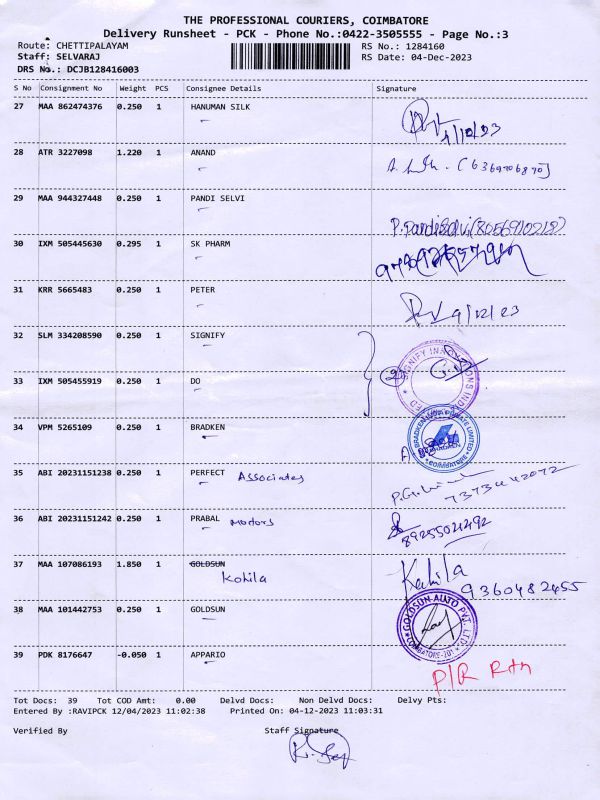 THE PROFESSIONAL COURIERS, COIMBATORE
Delivery Runsheet - PCK - Phone No.:0422-3505555 - Page No.:3
Route: CHETTIPALAYAM RS No.: 1284160
Staff: SELVARAJ RS Date: 04-Dec-2023
DRS No.: DCJB128416003
S No Consignment No Weight PCS Consignee Details Signature
27 MAA 862474376 0.250 1 HANUMAN SILK
28 ATR 3227098 1.220 1 ANAND
29 MAA 944327448 0.250 1 PANDI SELVI
P. Pandiselvi (8056910218)
30 IXM 505445630 0.295 1 SK PHARM
31 KRR 5665483 0.250 1 PETER
9/12/23
32 SLM 334208590 0.250 1 SIGNIFY
SIGNIFY INNOVATIONS INDIA
33 IXM 505455919 0.250 1 DO
2
34 VPM 5265109 0.250 1 BRADKEN
35 ABI 20231151238 0.250 1 PERFECT Associates
36 ABI 20231151242 0.250 1 PRABAL Motors
37 MAA 107086193 1.850 1 GOLDSUN
Kohila
Kohila
9360482455
38 MAA 101442753 0.250 1 GOLDSUN
GOLDSUN AUTO PVT. LTD.
39 PDK 8176647 -0.050 1 APPARIO
P/R Rtn
Tot Docs: 39 Tot COD Amt: 0.00 Delvd Docs: Non Delvd Docs: Delvy Pts:
Entered By :RAVIPCK 12/04/2023 11:02:38 Printed On: 04-12-2023 11:03:31
Verified By Staff Signature